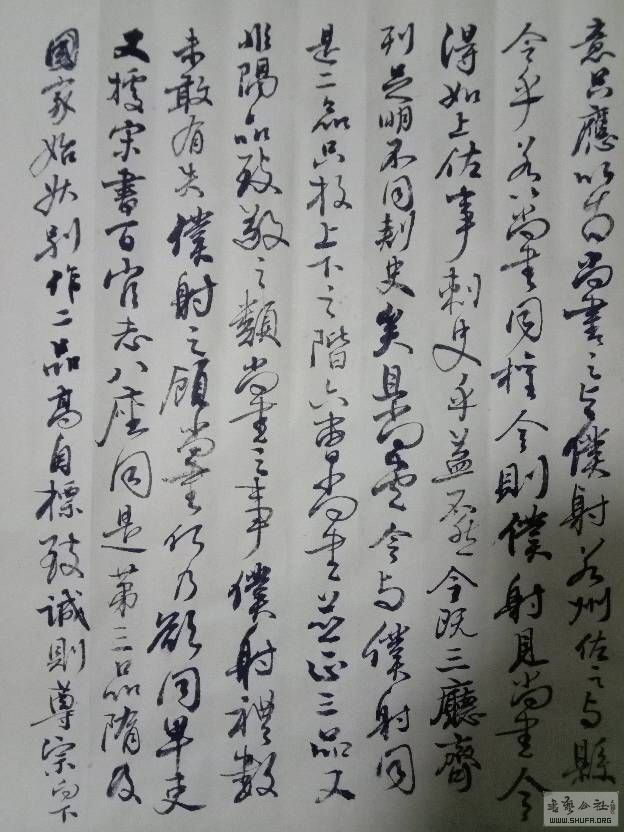 意只應以為尚書之與僕射若州佐之與縣
令乎若以尚書同於令則僕射見尚書令
得如上佐事刺史乎益不然今既三廳齊
列足明不同刺史矣且尚書令與僕射同
是二品只校上下之階六曹尚書並正三品又
非隔品致敬之類尚書之事僕射禮數
未敢有失僕射之顧尚書何乃欲同卑吏
又據宋書百官志八座同是第三品隋及
國家始升別作二品高自標致誠則尊崇向下
書藝公社
WWW.SHUFA.ORG